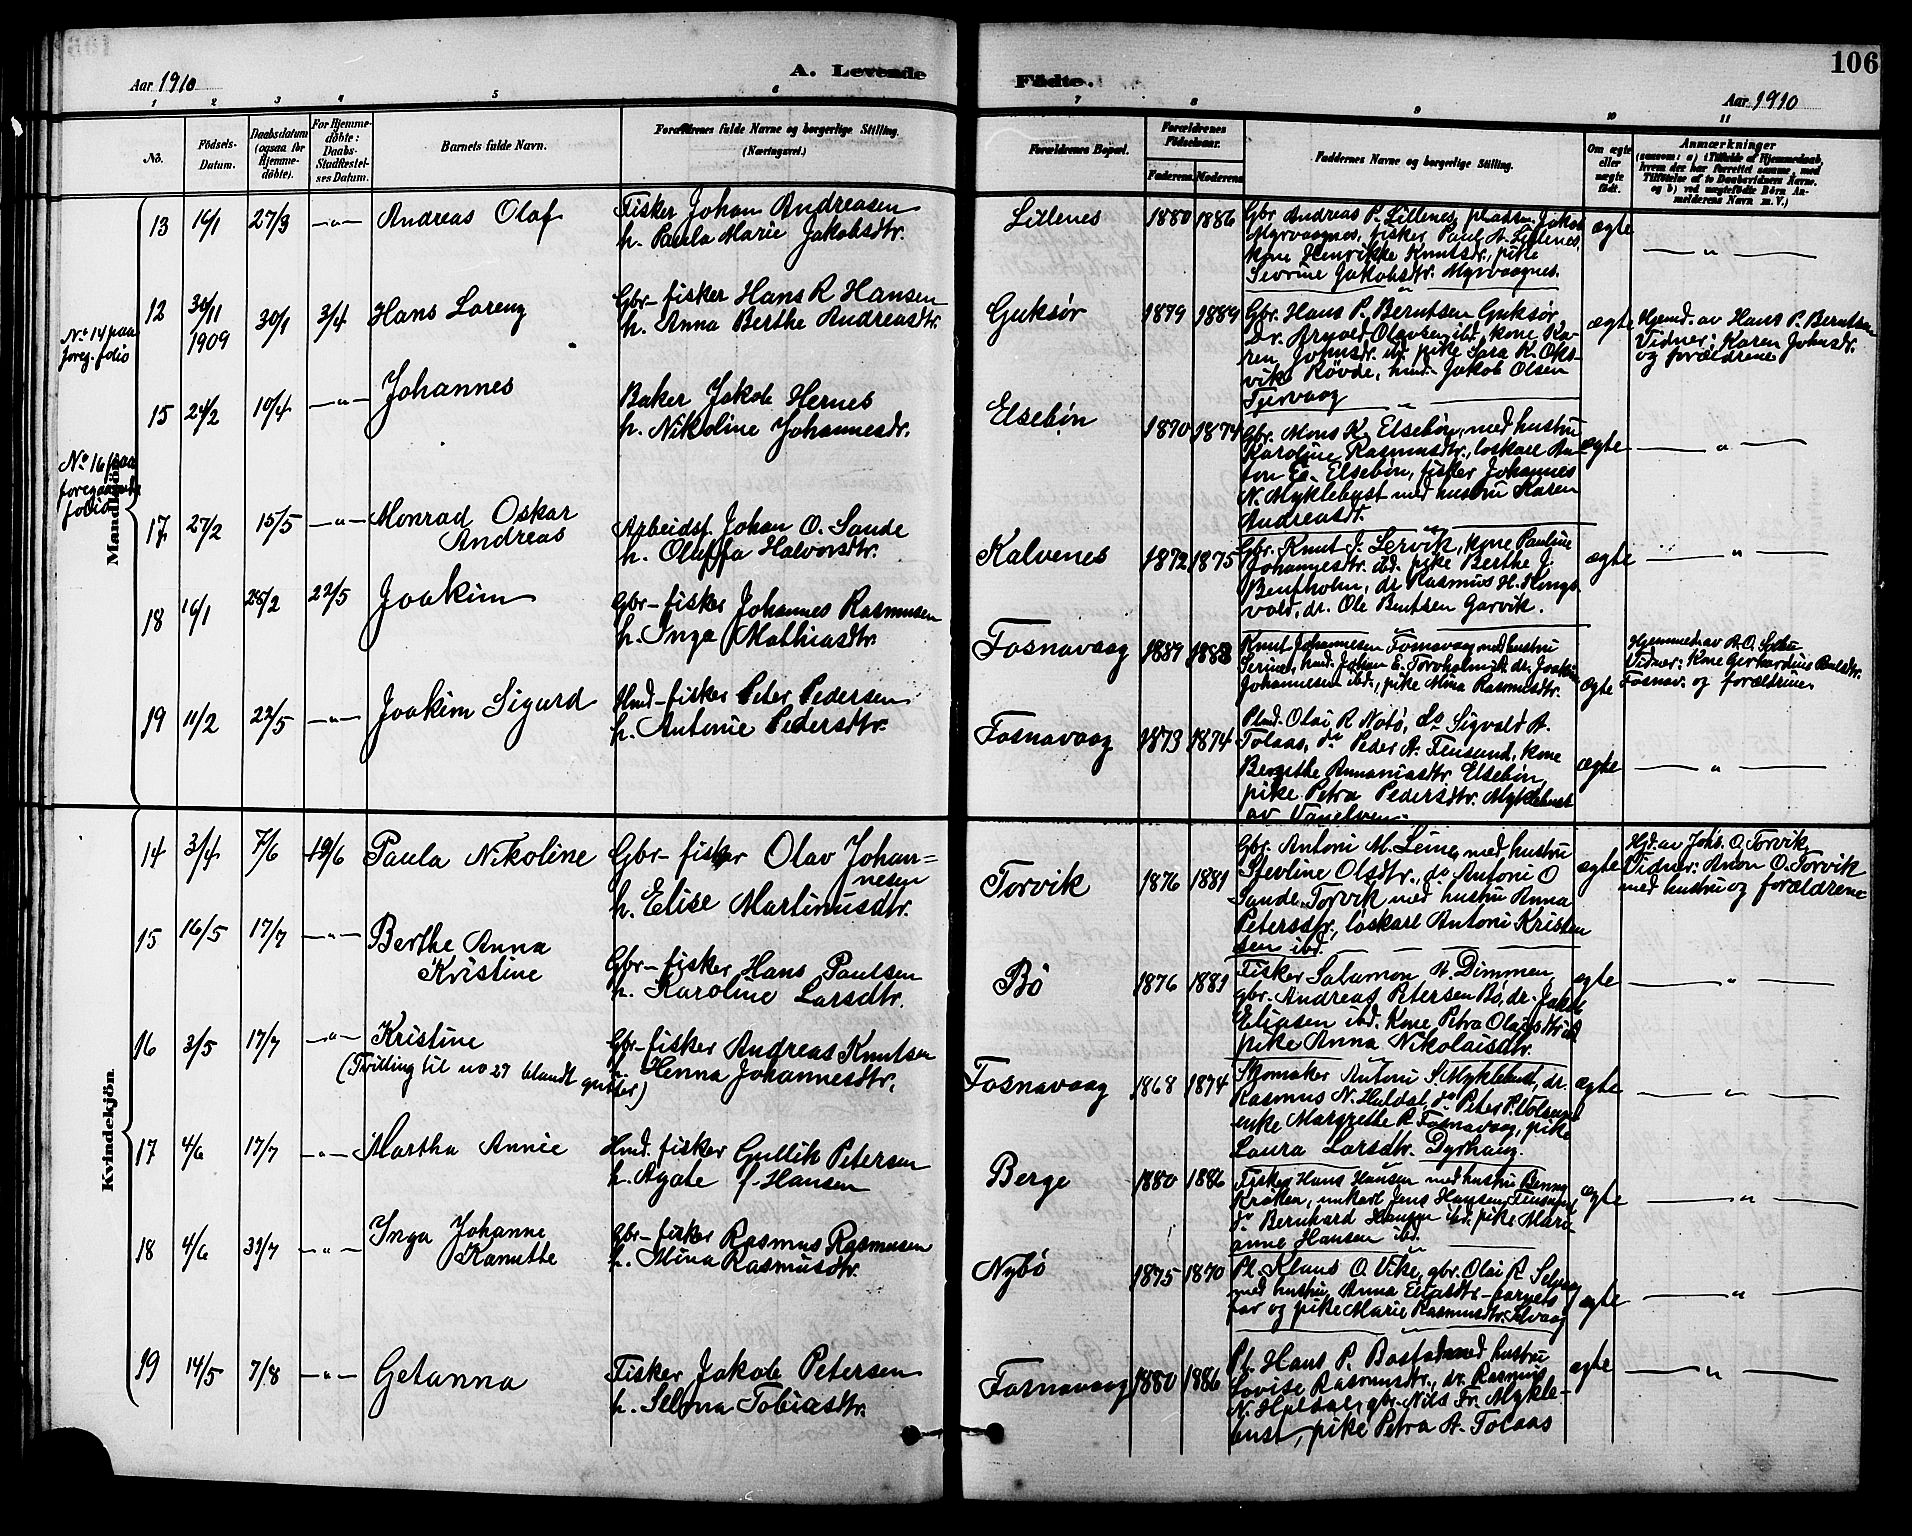 Aar 1910
A. Levende
Födte.
106
Aar 1910
1 2 3 4 5 6 7 8 9 10 11
No.
Födsels-
Datum.
Daabsdatum
(ogsaa for
Hjemme-
döbte).
For Hjemme-
döbte:
Daabs-
Stadfæstel-
ses Datum.
Barnets fulde Navn.
Forældrenes fulde Navne og borgerlige Stilling.
(Næringsvei.)
Forældrenes Bopæl.
Forældrenes
Födselsaar.
Faderens Moderens
Faddernes Navne og borgerlige Stilling.
Om ægte
eller
uægte
født.
Anmærkninger
Mandkjön.
13 16/1 27/3 -"- Andreas Olaf
Fisker Johan Andreasen
h. Paula Marie Jakobsdtr.
Lillenes 1880 1886
Gbr. Andreas P. Lillenes, pladsm. Jakob
Myrvaagnes, fisker Paul A. Lillenes,
kone Henrikke Knutsdr, pike
Sevrine Jakobsdtr. Myrvaagnes.
ægte — " —
No 14 paa
foreg. folio
12 30/11 1909 30/1 3/4 Hans Lorenz
Gbr- fisker Hans R Hansen
h. Anna Berthe Andreasdtr.
Guksør 1879 1889
Gbr. Hans P. Berntsen Guksør
Dr. Arnold Olavsen ibd. kone Ka-
ren Johnsdr. ibd. pike Sara K. Oks-
vik Rövde, hmd. Jakob Olsen
Tjervaag
ægte
Hjemd. av Hans P. Berntsen
Vidner: Karen Johnsdr.
og forældrene
15 24/2 10/4 -"- Johannes
Baker Jakob Hernes
h. Nikoline Johannesdr.
Elsebøn 1870 1874
Gbr. Mons K. Elsebøn, med hustru
Karoline Rasmusdtr., løskarl An-
ton E. Elsebøn, fisker Johannes
N. Myklebust med hustru Karen
Andreasdr.
ægte — " —
No 16 paa
foregaaende
folio
17 27/2 15/5 -"- Monrad Oskar
Andreas
Arbeidsf. Johan O. Sande
h. Oluffa Halvorsdtr.
Kalvenes 1872 1875
Gbr. Knut J. Lervik, kone Pauline
Johannesdtr. ibd. pike Berthe J.
dr. Rasmus H.
vold, dr. Ole Bentsen Garvik.
ægte — " —
18 16/1 25/2 22/5 Joakim
Gbr- fisker Johannes Rasmusen
h. Inga Mathiasdtr.
Fosnavaag 1889 1888
Knut Johannesen Fosnavaag med hustru
hmd. Johan E. dr. Joakim
Johannesen ibd., pike Mina Rasmusdtr.
ægte
Hjemmed. av R. O.
Vidner: Kone Gerhardine
Fosnav. og forældrene
19 11/2 22/5 -"- Joakim Sigurd
Hmd- fisker Peter Pedersen
h. Antonie Pedersdtr.
Fosnavaag 1873 1874
Plmd. Olai R Notö, do Sigvald A.
Tolaas, do Peder A. kone
Bergithe Ananiasdtr Elsebøn,
pike Petra Pedersdtr. Myklebust
av Vanelven.
ægte — " —
Kvindekjön.
14 3/4 7/6 19/6 Paula Nikoline
Gbr- fisker Olav Johan=
nesen
h. Elise Martinusdtr.
Torvik 1876 1881
Gbr. Antoni M. Leine, med hustru
Stevline Olsdtr., do Antoni O
Sande, Torvik med hustru Anna
Petersdtr, løskarl Antoni Kristen
sen ibd.
ægte
Hjd. av Johs. O. Torvik
Vidner: Anon O. Torvik
med hustru og forældrene
15 16/5 17/7 -"- Berthe Anna
Kristine
Gbr- fisker Hans Paulsen
h. Karoline Larsdtr.
Bö 1876 1881
Fisker Salamon A. Dimmen,
gbr. Andreas Petersen Bö, dr. Jakob
Eliasen ibd. Kone Petra
pike Anna Nikolaisdtr.
ægte — " —
16 3/5 17/7 -"- Kristine
(Tvilling til no 27 blandt gutter)
Gbr- fisker Andreas Knutsen
h. Henna Johannesdtr.
Fosnavaag 1868 1874
Skomaker Antoni S. Myklebust, dr.
Rasmus N. Huldal, do Peter P.
enke Margrethe R Fosnavaag, pike
Laura Larsdtr. Dyrhaug.
ægte — " —
17 4/6 17/7 -"- Martha Annie
Hmd. fisker Gullik Petersen
h. Agate f. Hansen
Berge 1880 1886
Fisker Hans Hansen med hustru Benna
Kraken, unkarl Jens Hansen,
do Bernhard Hansen ibd. pike Mari-
anne Hansen ibd.
ægte — " —
18 4/6 31/7 -"- Inga Johanne
Kanutte
Gbr- fisker Rasmus Rasmusen
h. Mina Rasmusdtr.
Nybö 1875 1870
Pl. Klaus O. Vike, gbr. Olai R
med hustru, Anna barnets
far og pike Marie Rasmusdtr.
ægte — " —
19 14/5 7/8 -"- Getanna
Fisker Jakob Petersen
h. Selma Tobiasdtr.
Fosnavaag 1880 1886
Pl. Hans P. med hustru
Lovise Rasmusdtr., dr. Rasmus
N. Huldal, gbr. Nils Fr. Mykle-
bust, pike Petra A. Tolaas
ægte — " —